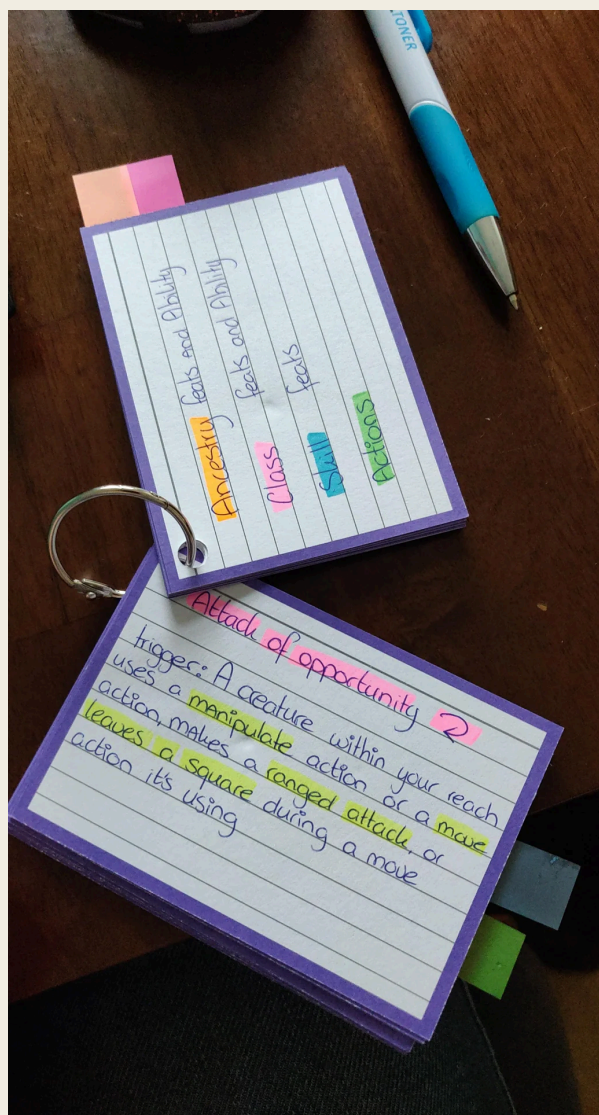 Ancestry feats and Ability
Class feats and Ability
Skill feats
Actions
Attack of opportunity
trigger: A creature within your reach
uses a manipulate action or a move
action, makes a ranged attack, or
leaves a square during a move
action it's using
TONER